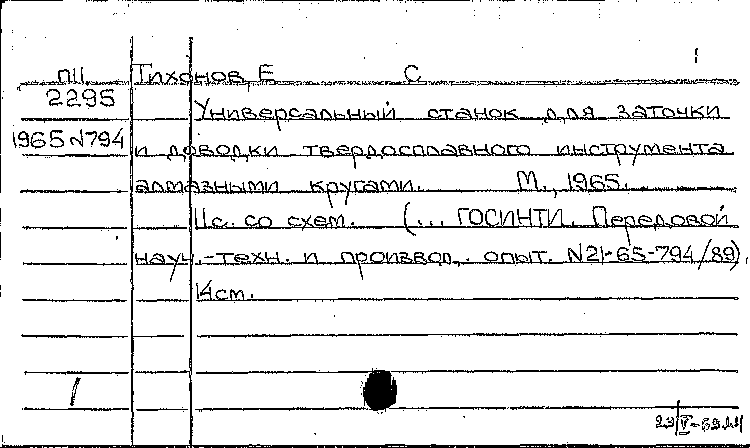 П11 Тихонов, Е С
2295
Универсальный станок для заточки
1965 N794
и доводки твердосплавного инструмента
алмазными кругами. М., 1965.
11с. со схем. (... ГОСИНТИ. Передовой
науч.-техн. и производ. опыт. N21-65-794/89).
14см.
1